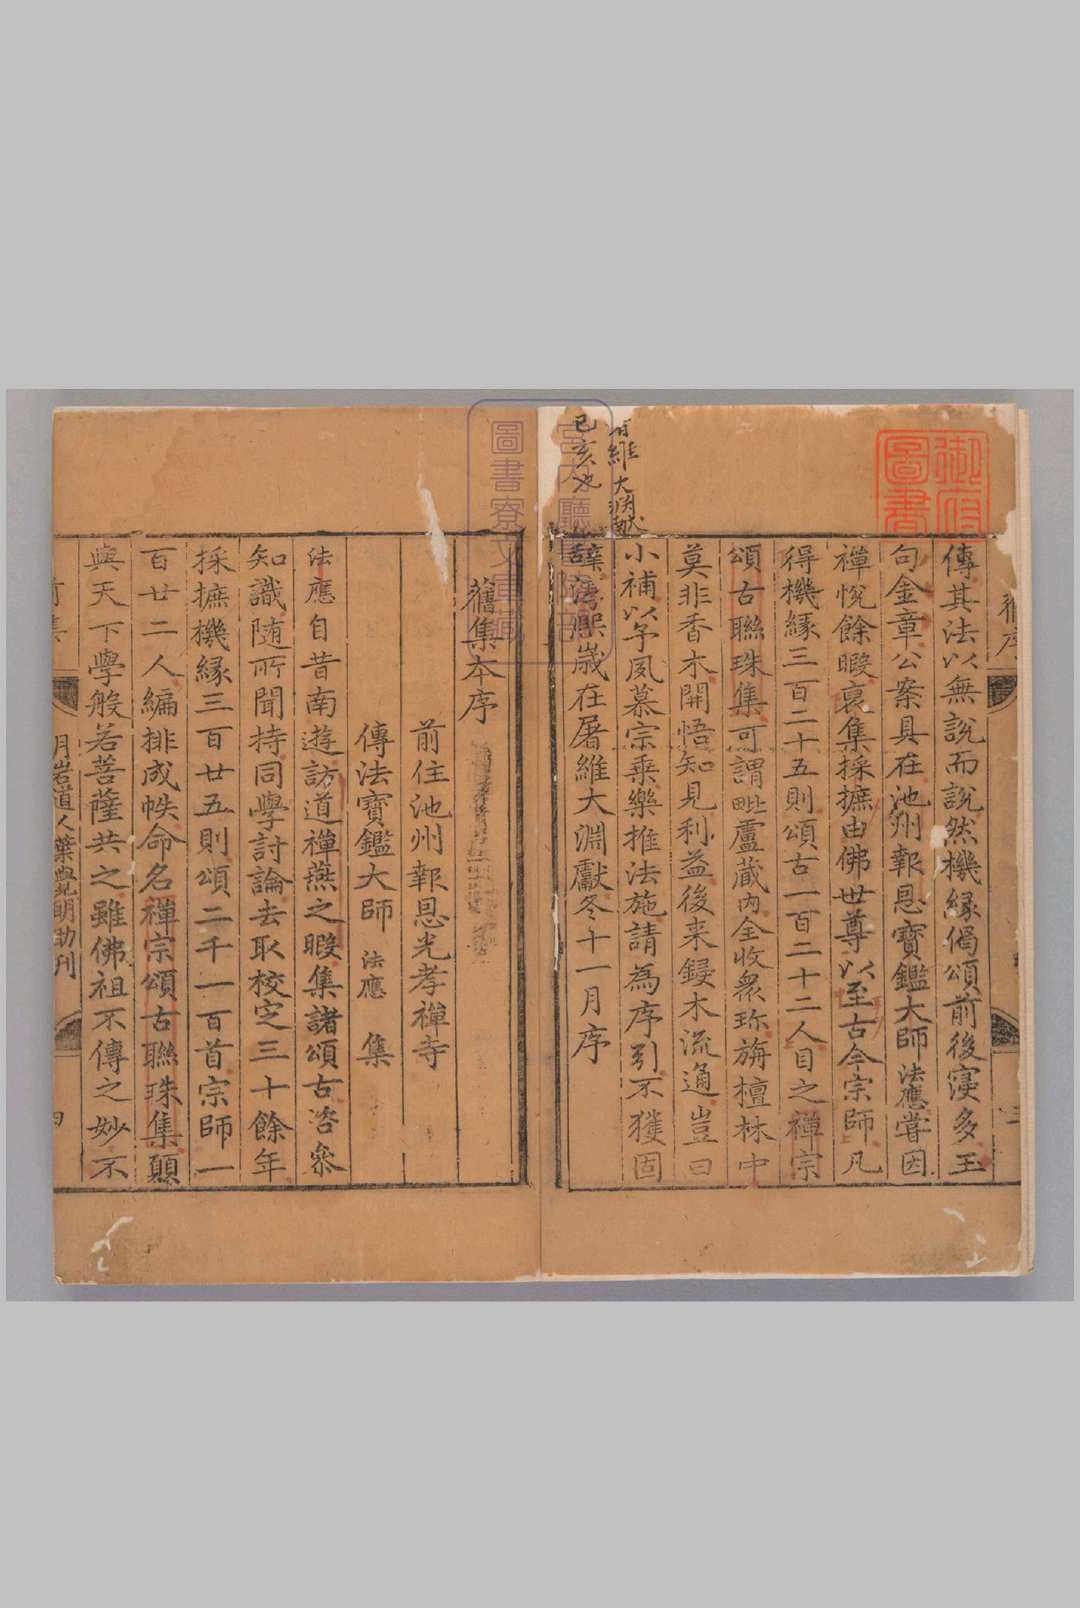 傳其法以無說而說然機縁偈頌前後寖多玉
句金章公案具在池州報恩寶鑑大師法應嘗因
禪恱餘暇裒集採摭由佛世尊以至古今宗師凡
得機縁三百二十五則頌古一百二十二人目之禪宗
頌古聯珠集可謂毗盧藏内全收衆珎旃檀林中
莫非香木開悟知見利益後来鋟木流通豈曰
小補以予夙慕宗乗樂推法施請為序引不獲固
辭淳熈歲在屠維大淵獻冬十一月序
屠維大渕献
己亥也
御府圖書
宮内廳
圖書寮文庫
舊集本序
前住池州報恩光孝禪寺
傳法寶鑑大師 法應 集
法應自昔南遊訪道禪燕之暇集諸頌古咨叅
知識随所聞持同學討論去取校定三十餘年
採摭機縁三百廿五則頌二千一百首宗師一
百廿二人編排成帙命名禪宗頌古聯珠集願
與天下學般若菩薩共之雖佛祖不傳之妙不
月岩道人葉兴明助刋
四